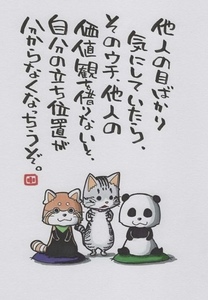 他人の目ばかり
気にしていたら、
そのウチ、他人の
価値観を借りないと、
自分の立ち位置が
分からなくなちうぞ。